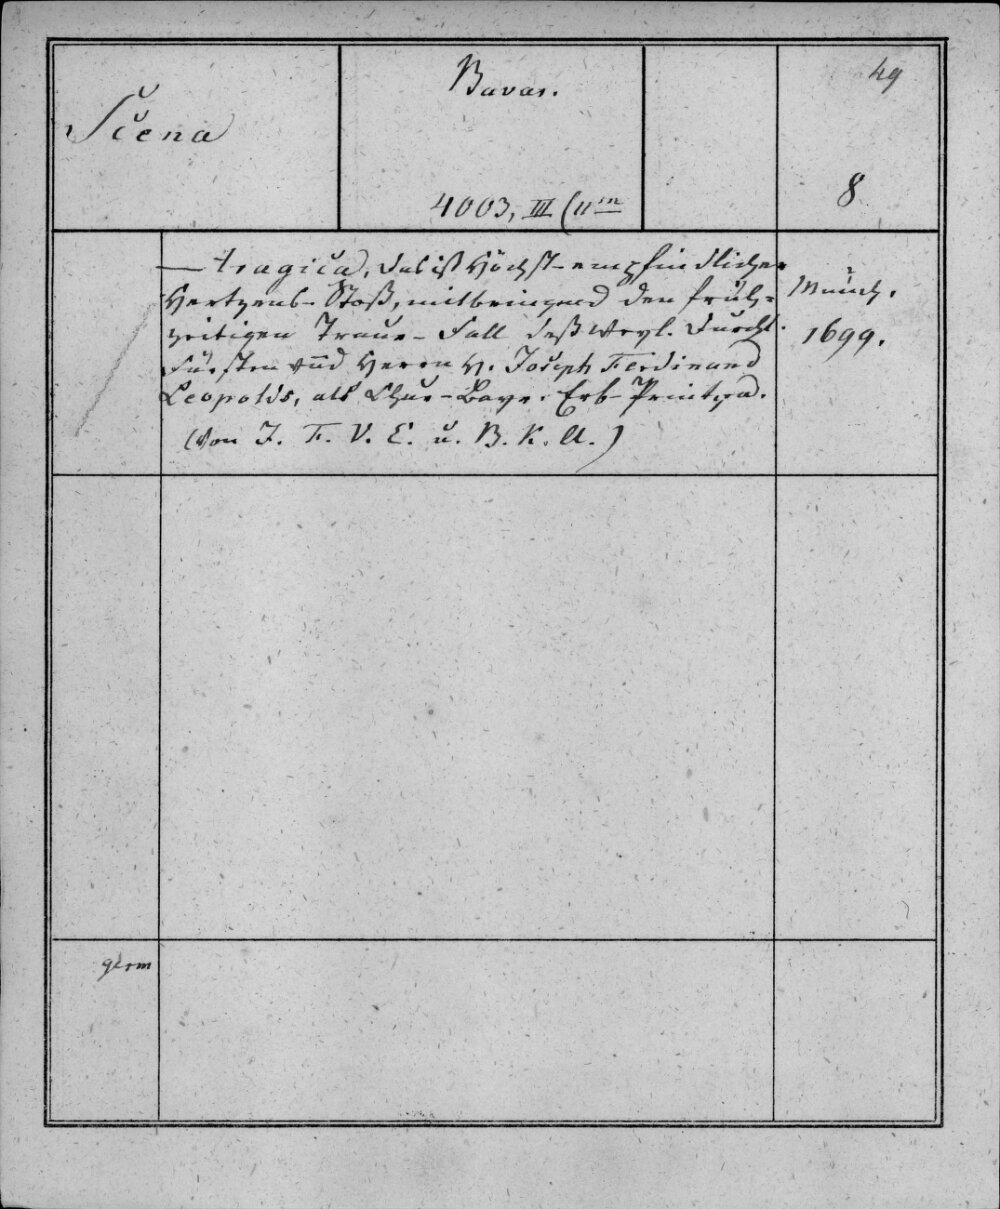 Scena
Bavar.
4003, III (11m
49
8
— tragica, das ist Höchst-empfindlicher
Hertzens-Stoß, mitbringend den früh-
zeitigen Traur-Fall deß Weyl. Durchl.
Fürsten vnd Herrn H. Joseph Ferdinand
Leopolds, als Chur-Bayr. Erb-Printzen.
(Von J. F. V. E. u. B. K. A.)
Münch.
1699.
germ